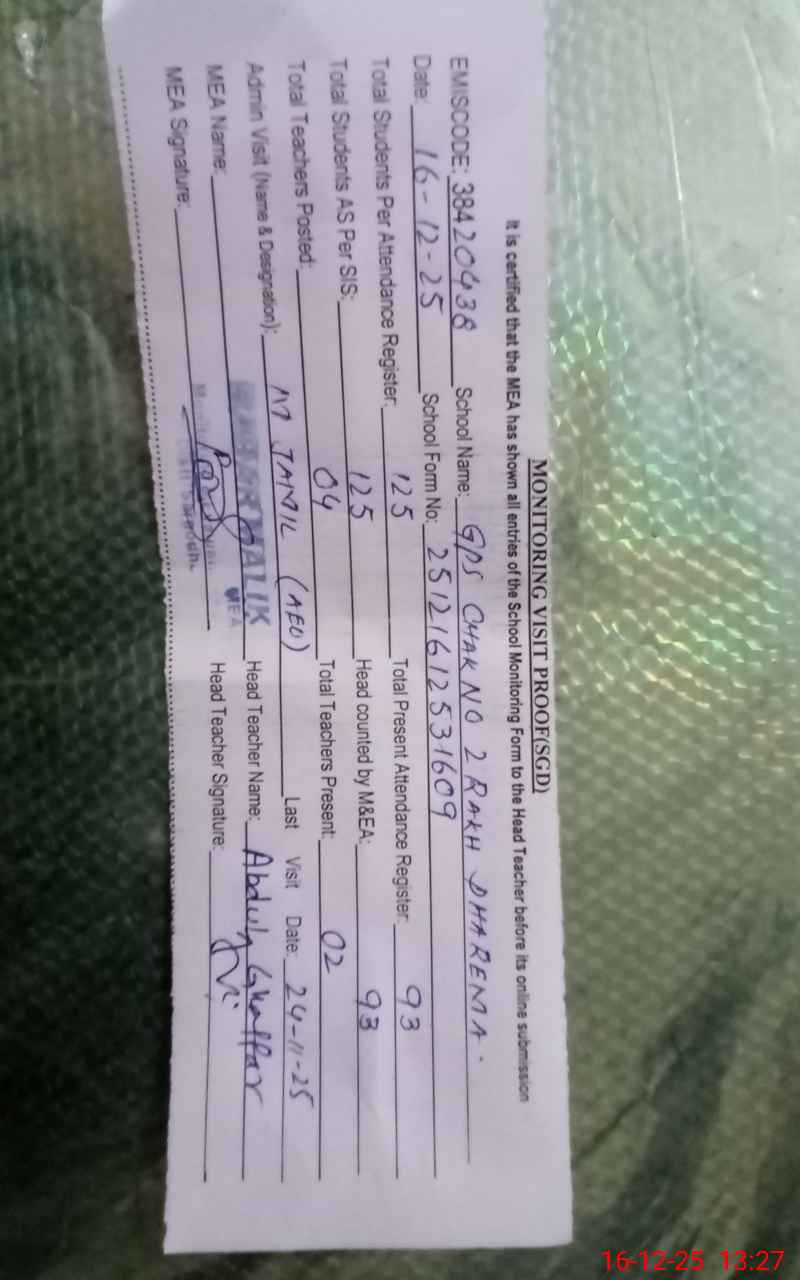 MONITORING VISIT PROOF(SGD)
It is certified that the MEA has shown all entries of the School Monitoring Form to the Head Teacher before its online submission
EMISCODE: 38420438 School Name: GPS CHAK NO 2 RAKH DHAREMA.
Date: 16-12-25 School Form No: 2512161253 1609
Total Students Per Attendance Register: 125 Total Present Attendance Register: 93
Total Students AS Per SIS: 125 Head counted by M&EA: 93
Total Teachers Posted: 04 Total Teachers Present: 02
Admin Visit (Name & Designation): M JAMIL (AEO) Last Visit Date: 24-11-25
MEA Name: MALIK MEA Head Teacher Name: Abdul Ghaffar
MEA Signature: Head Teacher Signature:
16-12-25 13:27